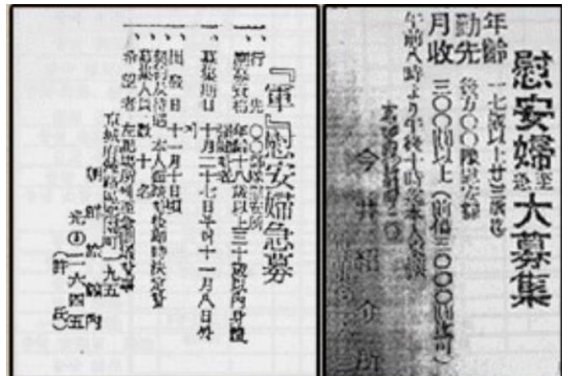 慰安婦至急大募集
年齢 一七歳以上廿三歳迄
勤先 後方〇〇隊慰安部
月收 三〇〇圓以上(前借三〇〇〇圓迄可)
午前八時より午後十時迄本人來談
今井紹介所
『軍』慰安婦急募
一、行先 〇〇部隊慰安所
一、應募資格 年齡十八歳以上三十歳以内身體
一、募集期日 十月二十七日 十一月八日
一、出發日 十一月十日頃
一、契約及待遇 本人面談後即時決定
一、募集人員 數十名
一、希望者 左記場所 至急問議
京城府鍾路區樂園町一九五
朝鮮旅館内
光 二六四五
(許氏)